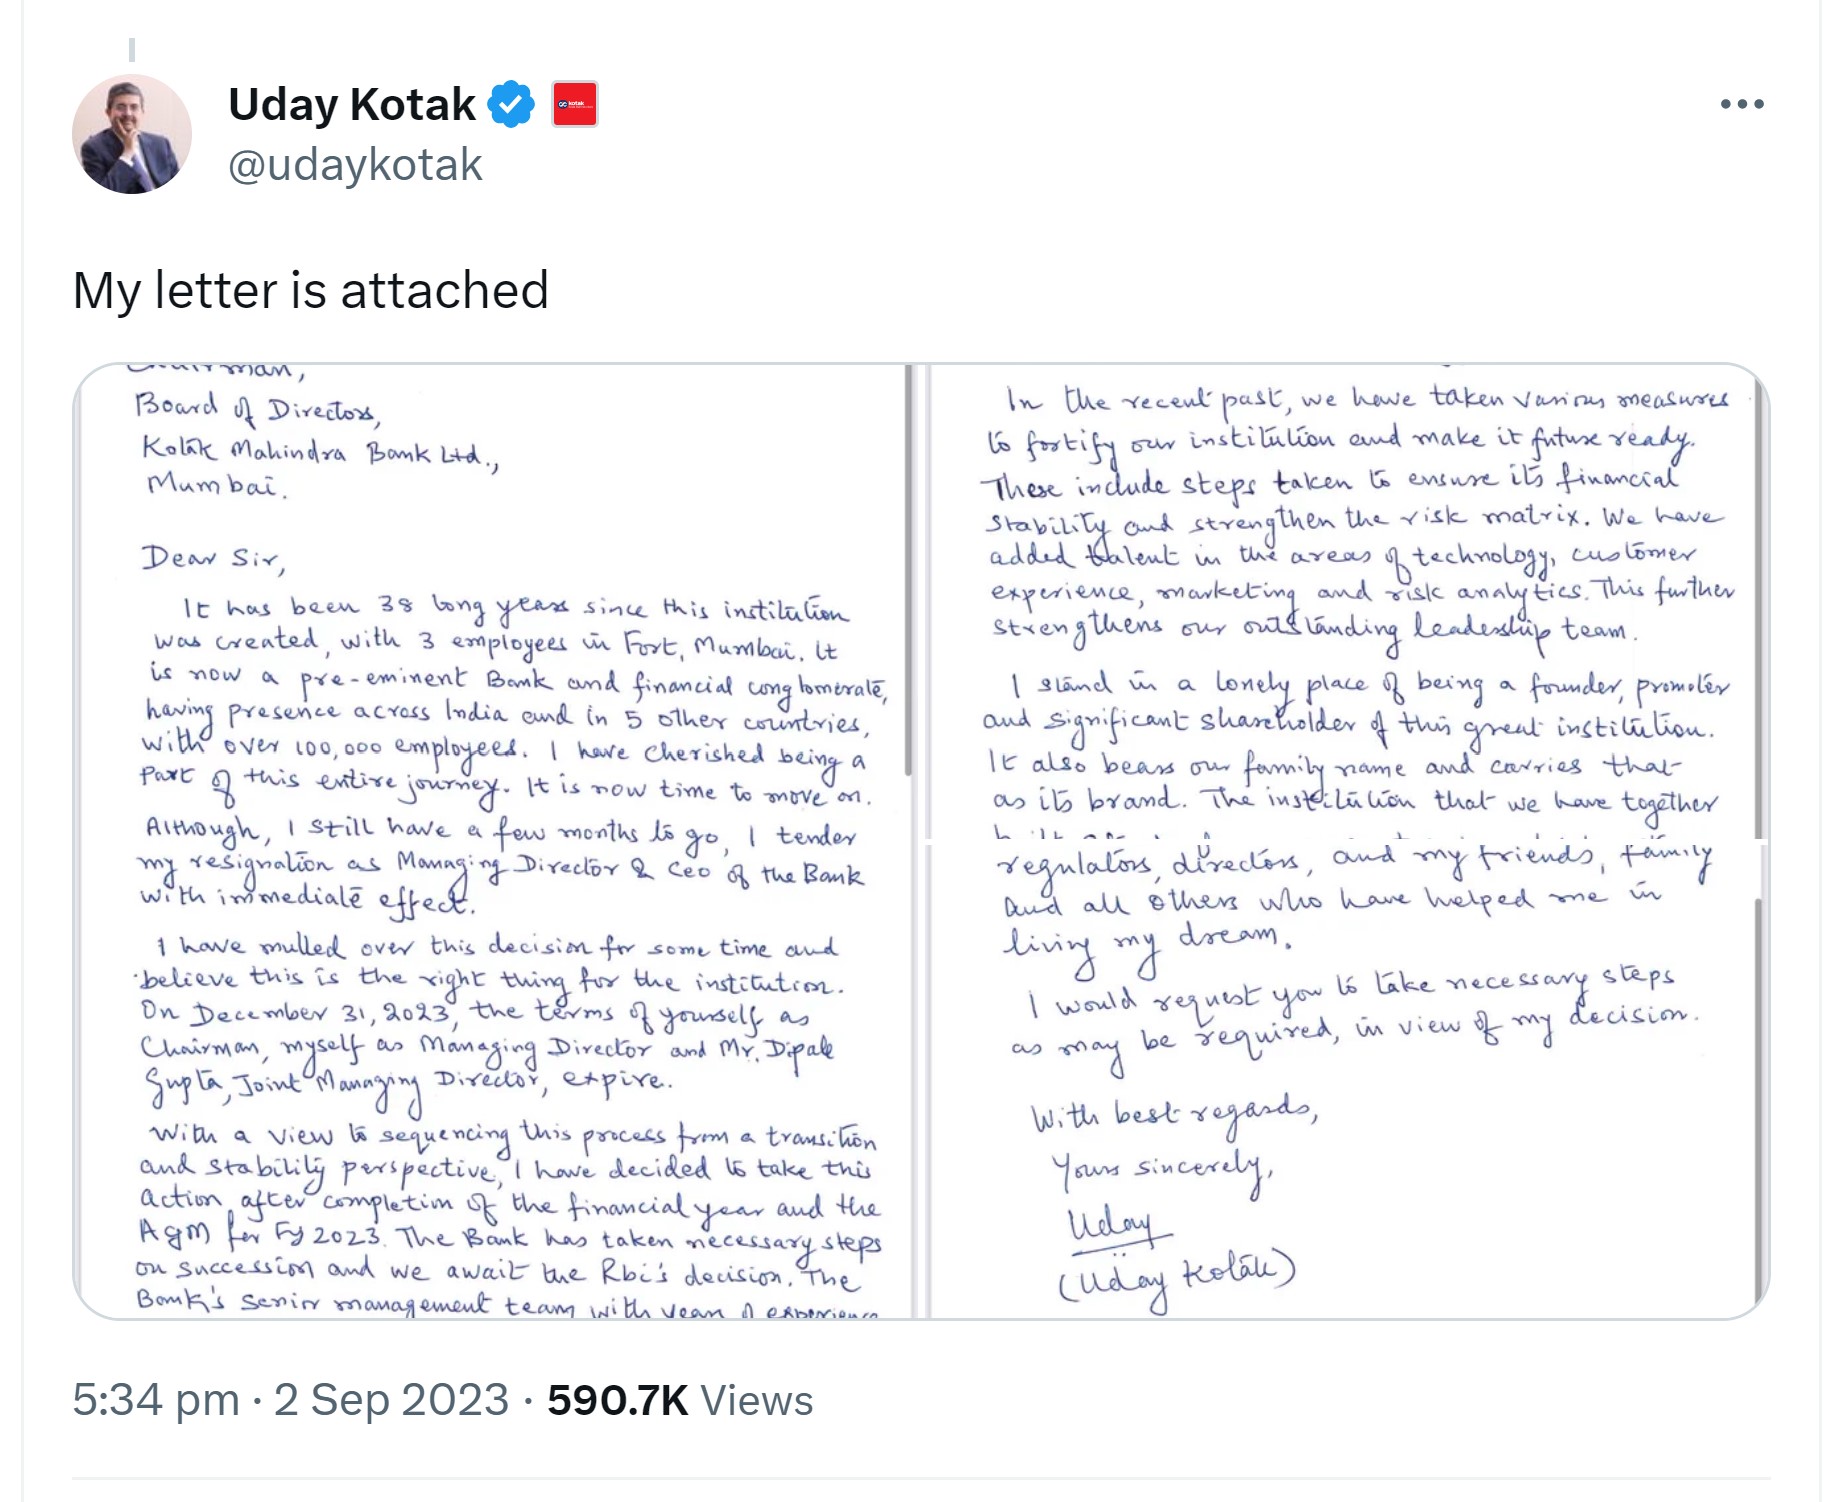 Uday Kotak
kotak
@udaykotak
My letter is attached
Chairman,
Board of Directors,
Kotak Mahindra Bank Ltd.,
Mumbai.
Dear Sir,
It has been 38 long years since this institution
was created, with 3 employees in Fort, Mumbai. It
is now a pre-eminent Bank and financial conglomerate,
having presence across India and in 5 other countries,
with over 100,000 employees. I have cherished being a
part of this entire journey. It is now time to move on.
Although, I still have a few months to go, I tender
my resignation as Managing Director & CEO of the Bank
with immediate effect.
I have mulled over this decision for some time and
believe this is the right thing for the institution.
On December 31, 2023, the terms of yourself as
Chairman, myself as Managing Director and Mr. Dipak
Gupta, Joint Managing Director, expire.
With a view to sequencing this process from a transition
and stability perspective, I have decided to take this
action after completion of the financial year and the
AGM for FY 2023. The Bank has taken necessary steps
on succession and we await the RBI's decision. The
Bank's senior management team with years of experience
In the recent past, we have taken various measures
to fortify our institution and make it future ready.
These include steps taken to ensure its financial
stability and strengthen the risk matrix. We have
added talent in the areas of technology, customer
experience, marketing and risk analytics. This further
strengthens our outstanding leadership team.
I stand in a lonely place of being a founder, promoter
and significant shareholder of this great institution.
It also bears our family name and carries that
as its brand. The institution that we have together
regulators, directors, and my friends, family
and all others who have helped me in
living my dream.
I would request you to take necessary steps
as may be required, in view of my decision.
With best regards,
Yours sincerely,
Uday
(Uday Kotak)
5:34 pm · 2 Sep 2023 · 590.7K Views